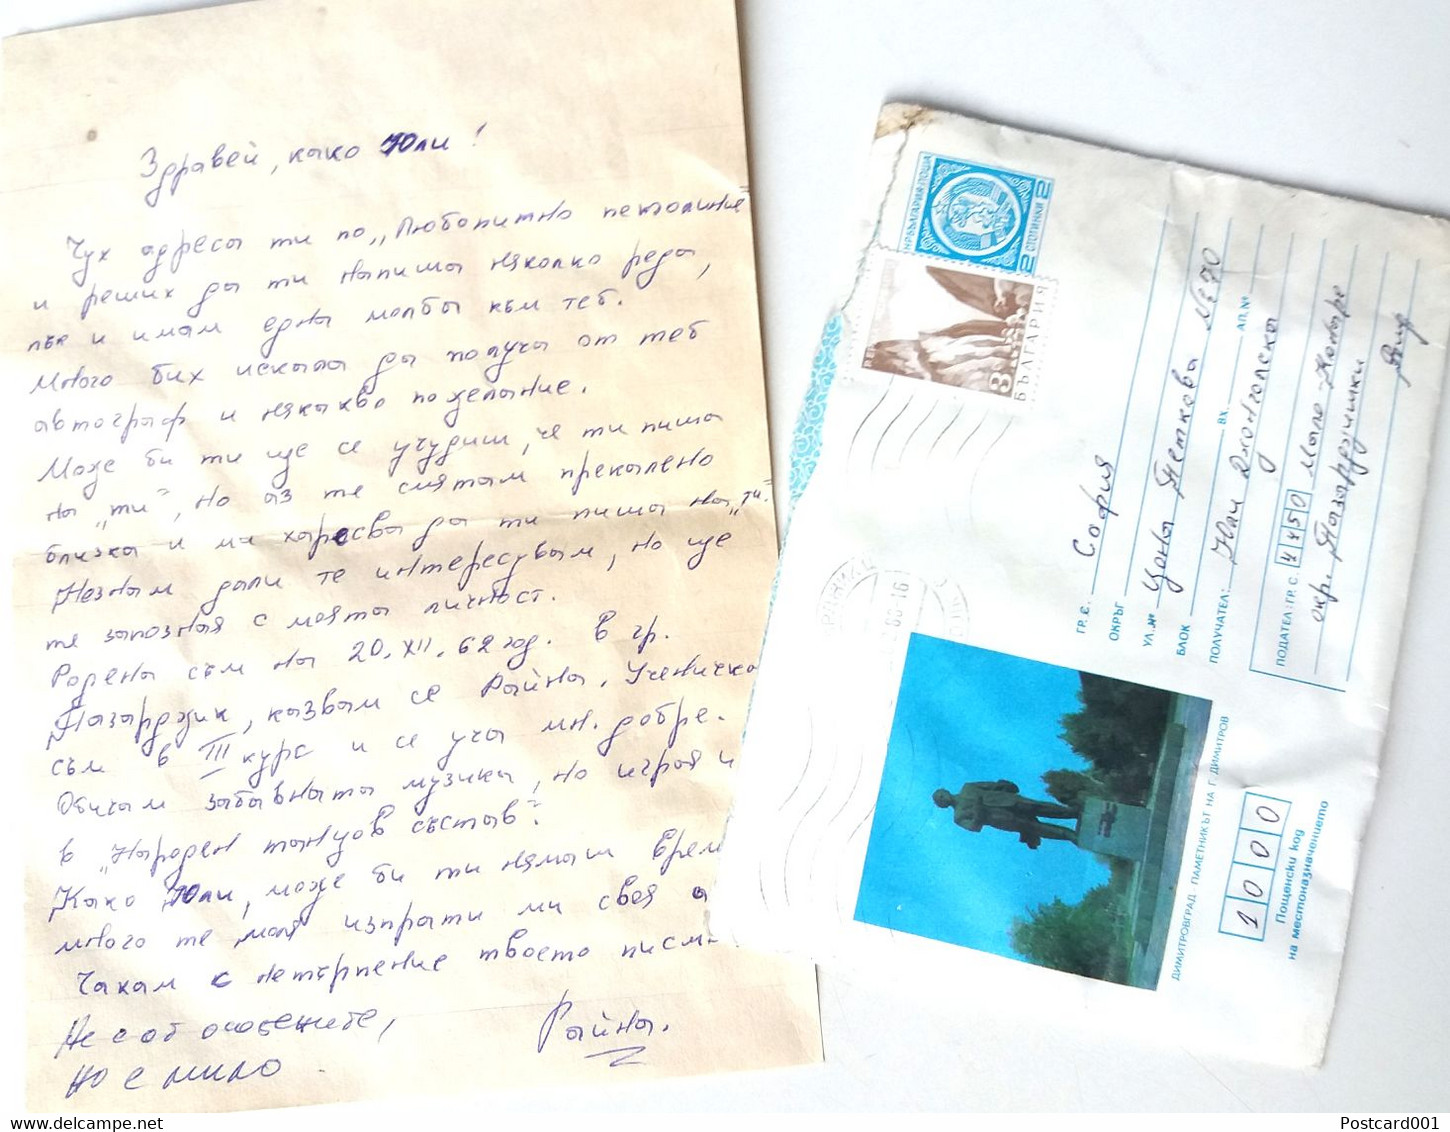 Здравей, како Юли!
Чух адреса ти по „Любопитно
и реших да ти напиша няколко реда,
пък и имам една молба към теб.
Много бих искала да получа от теб
автограф и някакво пожелание.
Може би ти ще се учудиш, че ти пиша
на „ти“, но аз те смятам прекалено
близка и ми харесва да ти пиша на „ти“.
Незнам дали те интересувам, но ще
те запозная с моята личност.
Родена съм на 20.XII.62 год. в гр.
Пазарджик, казвам се Райна. Ученичка
съм в III курс и се уча мн. добре.
Обичам забавната музика, но играя и
в „Народен танцов състав“.
Како Юли, може би ти нямаш врем
много те моля изпрати ми своя а
Чакам с нетърпение твоето писм
Не е от особените,
Но е мило
Райна.
НР БЪЛГАРИЯ·ПОЩА
2 СТОТИНКИ 2
3
БЪЛГАРИЯ
ГР. С. София
ОКРЪГ
УЛ. № Цона Петкова № 70
БЛОК ВХ. АП. №
ПОЛУЧАТЕЛ: Юли
ПОДАТЕЛ: ГР. С. 4450 Мало Конаре
окр. Пазарджишки
ДИМИТРОВГРАД. ПАМЕТНИКЪТ НА Г. ДИМИТРОВ
1000
Пощенски код
на местоназначението
Postcard001